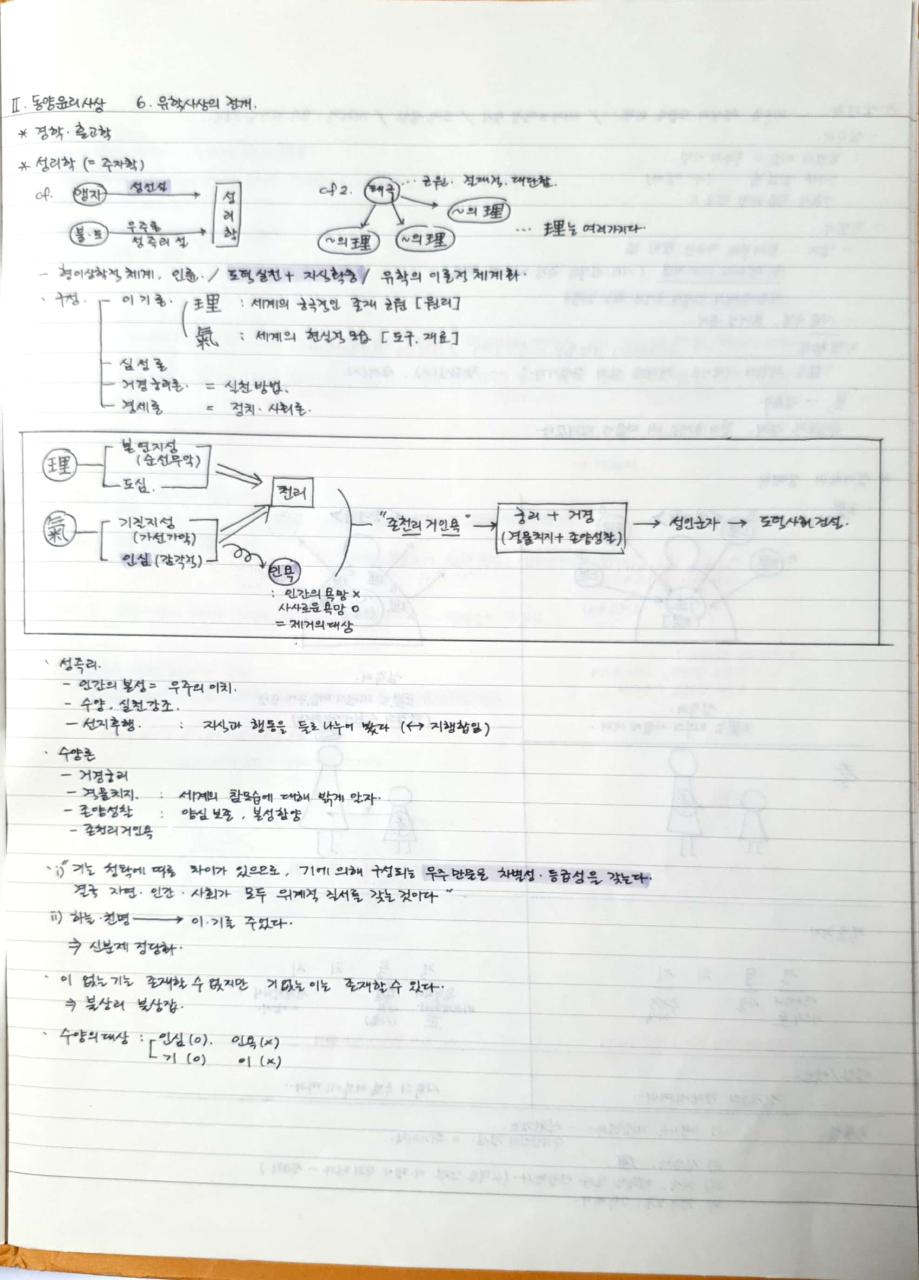 II. 동양윤리사상 6. 유학사상의 전개.
* 경학·훈고학
* 성리학 (= 주자학)
cf. 맹자 성선설
불·도 우주론 성즉리설
성리학
cf 2. 태극 … 근원. 절대적, 대단함.
~의 理
~의 理 ~의 理 … 理는 여러가지다.
- 형이상학적 체계, 인륜 / 도덕실천 + 지식학습 / 유학의 이론적 체계화.
· 구성. 이기론. 理 : 세계의 궁극적인 존재 근원 [원리]
氣 : 세계의 현실적 모습 [도구, 재료]
심성론
거경궁리론. = 실천방법.
경세론 = 정치·사회론.
理 본연지성
(순선무악)
도심.
천리
氣 기질지성
(가선가악)
인심 (감각적)
인욕
: 인간의 욕망 x
사사로운 욕망 o
= 제거의 대상
"존천리 거인욕" → 궁리 + 거경
(격물치지 + 존양성찰)
→ 성인군자 → 도덕사회 건설.
· 성즉리.
- 인간의 본성 = 우주의 이치.
- 수양, 실천강조.
- 선지후행. : 지식과 행동을 둘로 나누어 봤다 (↔ 지행합일)
· 수양론
- 거경궁리
- 격물치지. : 세계의 참모습에 대해 밝게 안자.
- 존양성찰 : 양심 보존, 본성함양
- 존천리거인욕
· i) "기는 청탁에 따른 차이가 있으므로, 기에 의해 구성되는 우주 만물은 차별성·등급성을 갖는다.
결국 자연·인간·사회가 모두 위계적 질서를 갖는 것이다"
ii) 하늘·천명 → 이·기를 주었다.
⇒ 신분제 정당화.
· 이 없는 기는 존재할 수 없지만 기 없는 이는 존재할 수 있다.
⇒ 불상리 불상잡.
· 수양의 대상 : 인심 (o). 인욕 (x)
기 (o) 이 (x)